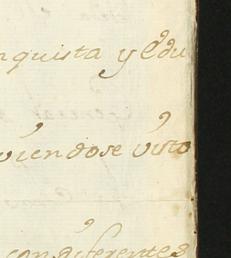 nquista y Edu
viendose visto
con diferentes